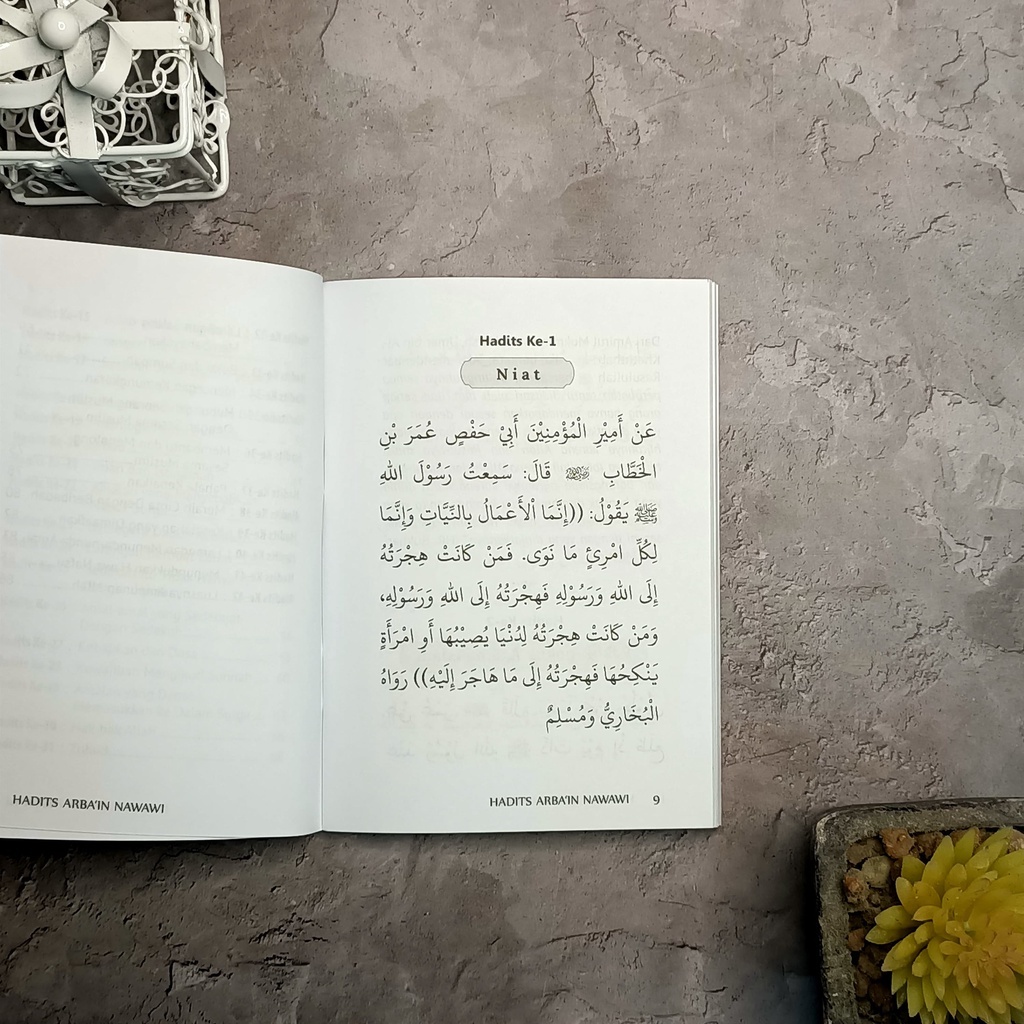 Hadits Ke-1
Niat
عَنْ أَمِيْرِ الْمُؤْمِنِيْنَ أَبِيْ حَفْصٍ عُمَرَ بْنِ
الْخَطَّابِ ﵁ قَالَ: سَمِعْتُ رَسُوْلَ اللهِ
ﷺ يَقُوْلُ: ((إِنَّمَا الْأَعْمَالُ بِالنِّيَّاتِ وَإِنَّمَا
لِكُلِّ امْرِئٍ مَا نَوَى. فَمَنْ كَانَتْ هِجْرَتُهُ
إِلَى اللهِ وَرَسُوْلِهِ فَهِجْرَتُهُ إِلَى اللهِ وَرَسُوْلِهِ،
وَمَنْ كَانَتْ هِجْرَتُهُ لِدُنْيَا يُصِيْبُهَا أَوِ امْرَأَةٍ
يَنْكِحُهَا فَهِجْرَتُهُ إِلَى مَا هَاجَرَ إِلَيْهِ)) رَوَاهُ
الْبُخَارِيُّ وَمُسْلِمٌ
HADITS ARBA'IN NAWAWI
HADITS ARBA'IN NAWAWI 9